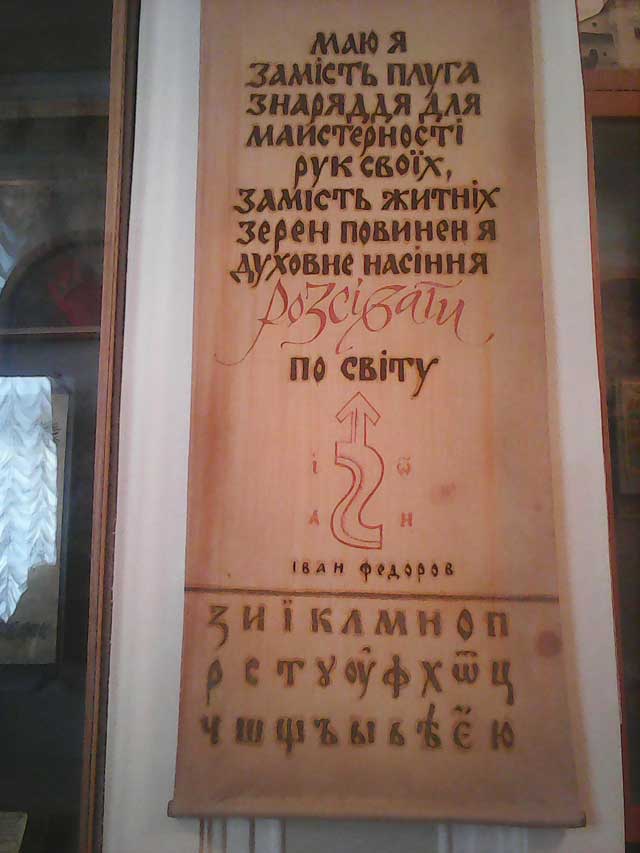 МАЮ Я
ЗАМІСТЬ ПЛУГА
ЗНАРЯДДЯ ДЛЯ
МАЙСТЕРНОСТІ
РУК СВОЇХ,
ЗАМІСТЬ ЖИТНІХ
ЗЕРЕН ПОВИНЕН Я
ДУХОВНЕ НАСІННЯ
РОЗСІВАТИ
ПО СВІТУ
І Ѿ
А Н
ІВАН ФЕДОРОВ
З И Ї К Л М Н О П
Р С Т У ОУ Ф Х Ѿ Ц
Ч Ш Щ Ъ Ы Ь Ѣ Є Ю